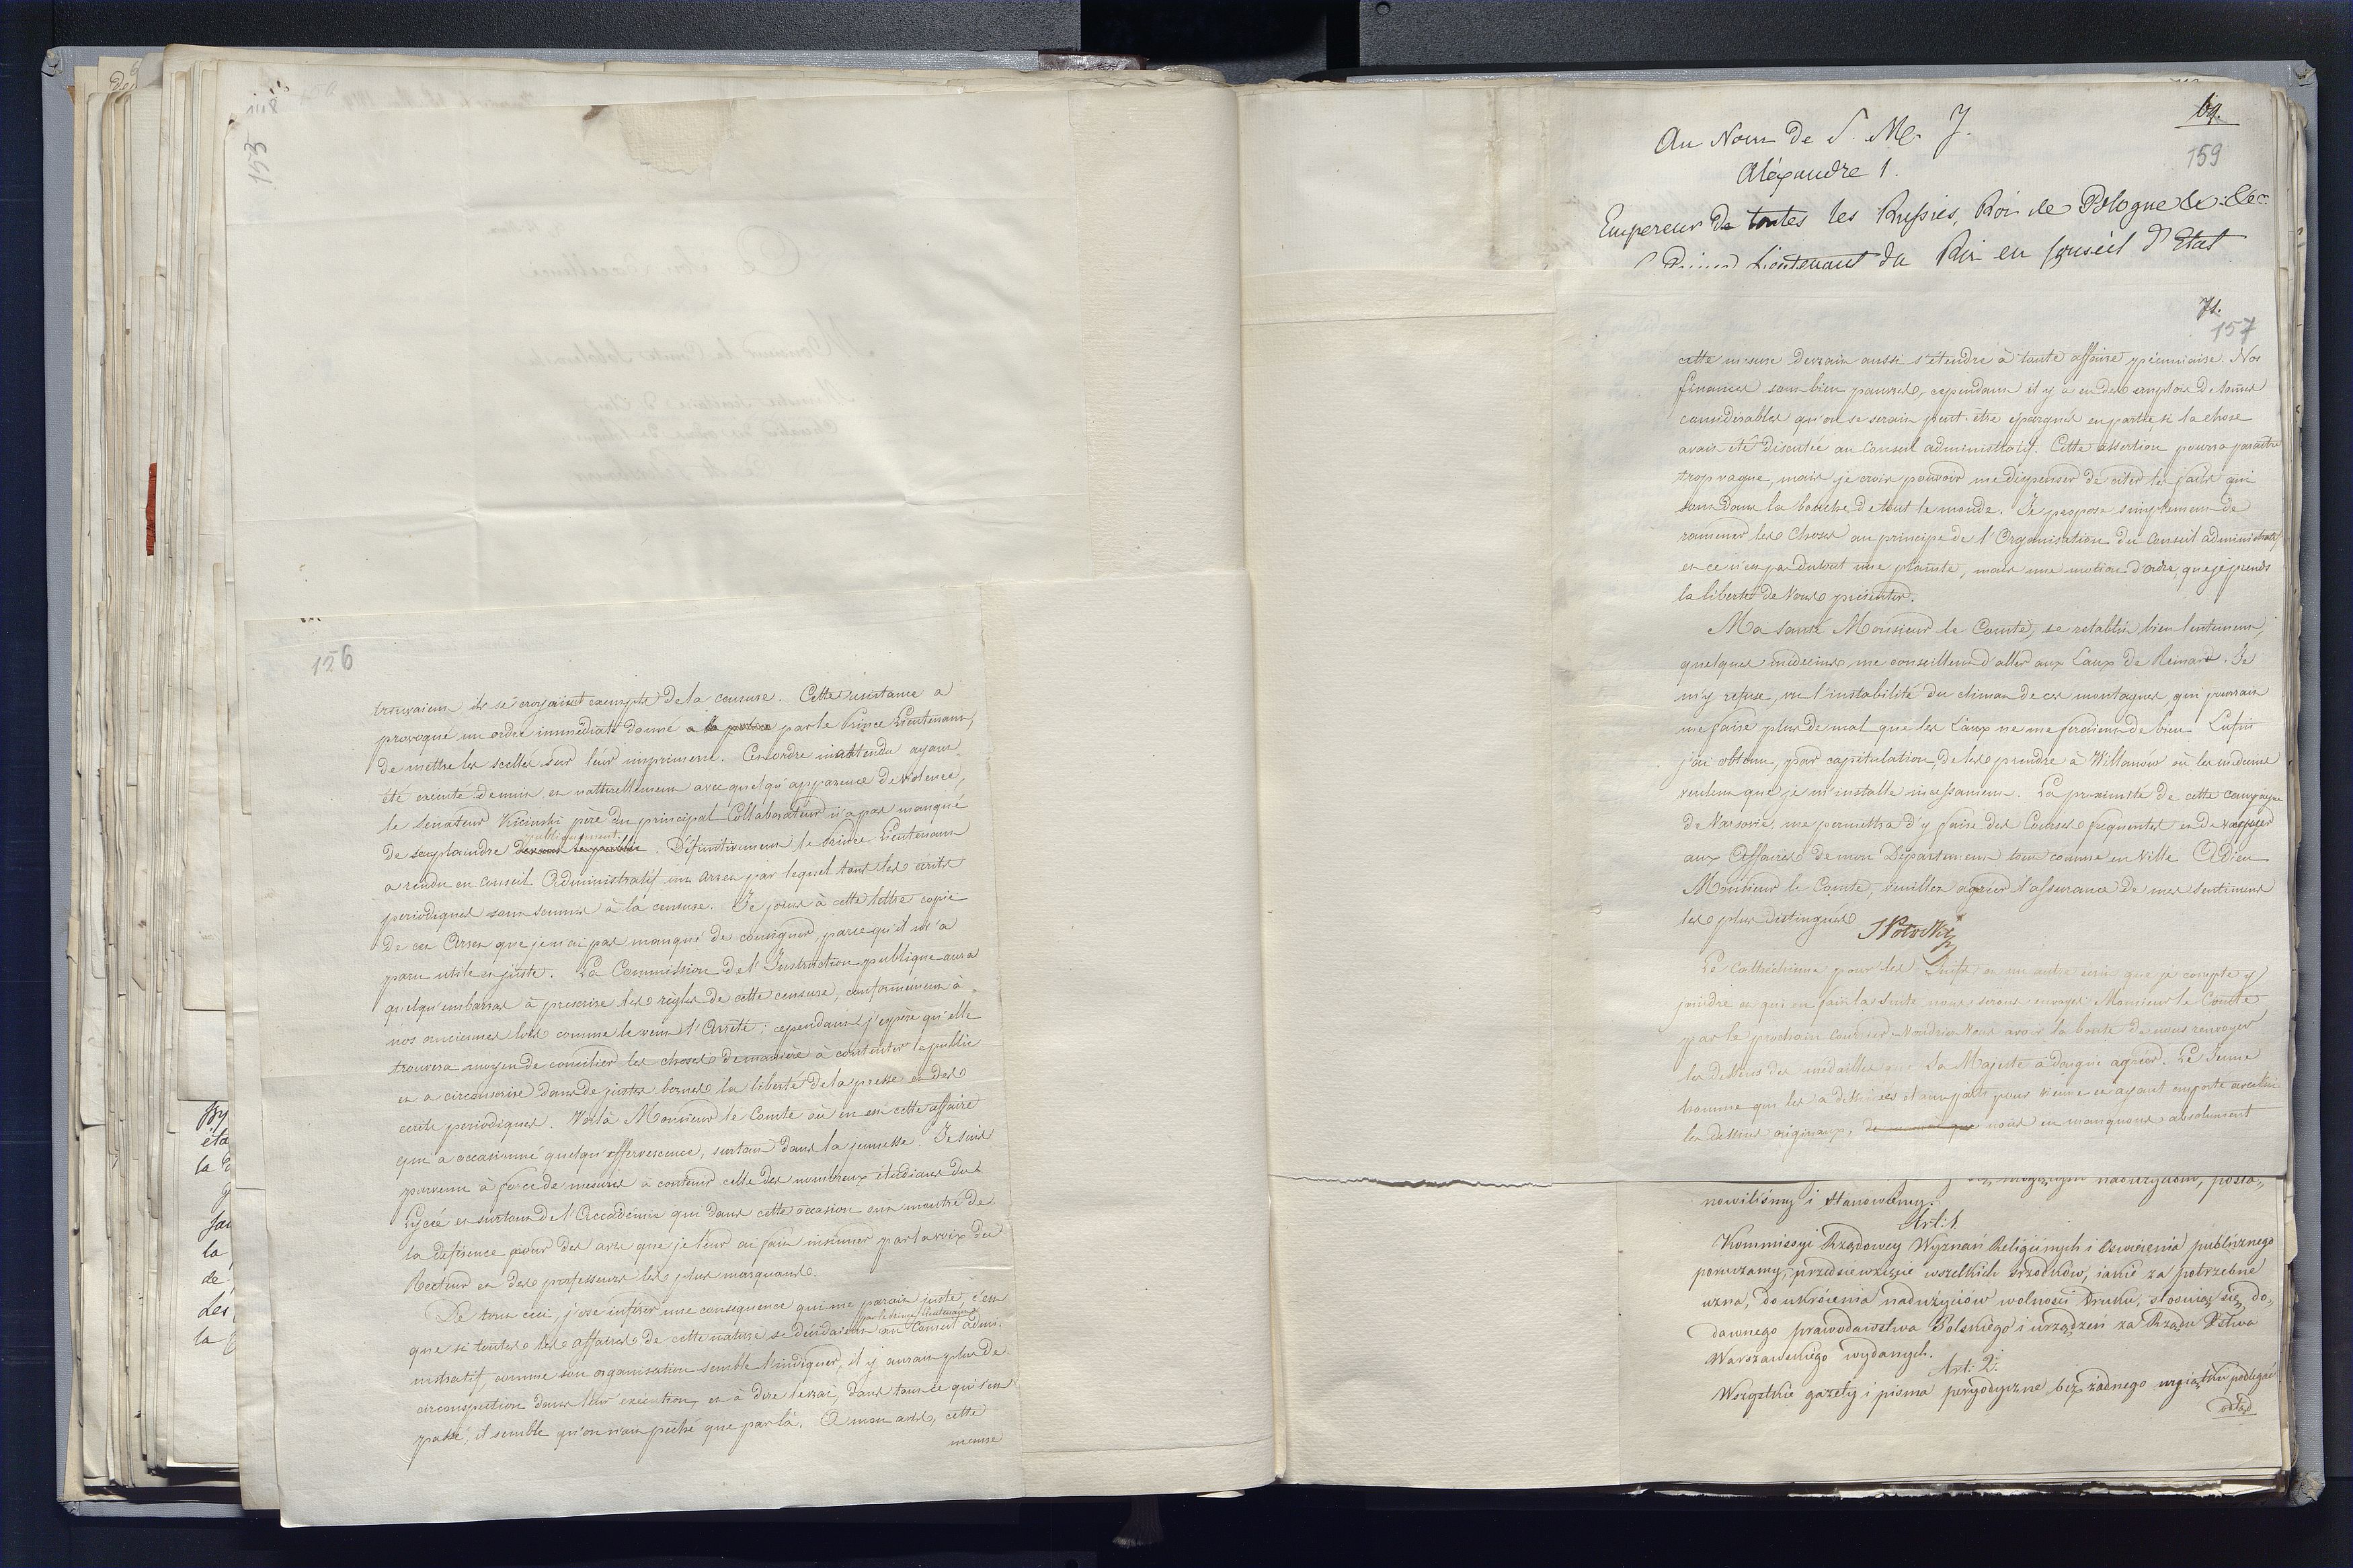 153
156
trouvaient ils se croyaient exempts de la censure. Cette resistance a
provoqué un ordre immédiat donné a la police par le Prince Lieutenant,
de mettre les scellés sur leur imprimerie. Cet ordre inattendu ayant
été executé demin et naturellement avec quelqu'apparence de violence,
le senateur Kicinski père du principal Collaborateur n'a pas manqué
publiquement
de s'en plaindre devant le public. Définitivement le Prince Lieutenant
a rendu en Conseil Administratif un Arreté par lequel tous les ecrits
periodiques sont soumis à la censure. Je joins à cette lettre copie
de cet Arreté que je n'ai pas manqué de contresigner, parce qu'il m'a
paru utile et juste. La Commission de l'Instruction publique aura
quelqu'embarras à prescrire les règles de cette censure, conformément à
nos anciennes loix comme le veut l'Arreté; cependant j'espère qu'elle
trouvera moyen de concilier les choses de manière à contenter le public
et a circonscrire dans de justes bornes la liberté de la presse et des
ecrits periodiques. Voilà Monsieur le Comte où en est cette affaire
qui a occasionné quelqu'effervescence, surtout dans la jeunesse. Je suis
parvenu à force de mesures a contenir celle des nombreux étudians du
Lycée et surtout de l'Accadémie qui dans cette occasion ont montré de
la deference pour des avis que je leur ai fait insinuer par la voix du
Recteur et des professeurs les plus marquans.
De tout ceci, j'ose inférer une consequence qui me parait juste, c'est
par le Prince Lieutenant
que si toutes les affaires de cette nature se décidaient au Conseil admi-
nistratif, comme son organisation semble l'indiquer, il y aurait plus de
circonspection dans leur execution, et à dire le vrai, dans tout ce qui s'est
passé, il semble qu'on n'ait péché que par là. A mon avis, cette
mesure
69.
159
Au Nom de S. M. J.
Aléxandre 1.
Empereur de toutes les Russies, Roi de Pologne &c. &c.
Lieutenant du Roi en Conseil d'Etat
71.
157
cette mesure devrait aussi s'etendre à toute affaire pécuniaire. Nos
finances sont bien pauvres, cependant il y a eu des emplois de sommes
considérables qu'on se serait peut-être épargnés en partie si la chose
avait été discutée au Conseil administratif. Cette assertion pourra paraitre
trop vague, mais je crois pouvoir me dispenser de citer les faits qui
sont dans la bouche de tout le monde. Je propose simplement de
ramener les choses au principe de l'Organisation du Conseil administratif
et ce n'est pas du tout une plainte, mais une motion d'ordre, que je prends
la liberté de Vous présenter.
Ma santé Monsieur le Comte, se retablit bien lentement,
quelques médecins me conseillent d'aller aux Eaux de Reinard. Je
m'y refuse, vu l'instabilité du climat de ces montagnes, qui pourrait
me faire plus de mal que les Eaux ne me feraient de bien. Enfin
j'ai obtenu, par capitulation, de les prendre à Willanów où les médecins
veulent que je m'installe incessament. La proximité de cette campagne
de Varsovie, me permettra d'y faire des Courses frequentes et de vaquer
aux Affaires de mon Département tout comme en Ville. Adieu
Monsieur le Comte, veuillez agréer l'assurance de mes sentimens
les plus distingués
SPotocki
Le Cathéchisme pour les Juifs et un autre écrit que je compte y
joindre et qui en fait la suite vous seront envoyés Monsieur le Comte
par le prochain Courrier. Voudriez Vous avoir la bonté de nous renvoyer
les dessins des medailles que Sa Majesté a daigné agréer. Le Jeune
homme qui les a dessinées etant parti pour Vienne et ayant emporté avec lui
les dessins originaux, nous en manquons absolument
nowiliśmy i stanowiemy.
Art: 1.
Kommissyi Rządowey Wyznań Religiinych i Oświecenia publicznego
poruczamy, przedsięwzięcie wszelkich srzodków, iakie za potrzebne
uzna, do ukrócenia nadużyciów wolności druku, stosuiąc się do
dawnego prawodawstwa Polskiego i urządzeń za Rządu Xstwa
Warszawskiego wydanych.
Art: 2.
Wszystkie gazety i pisma peryodyczne bez żadnego wyiątku podlegać
odtąd